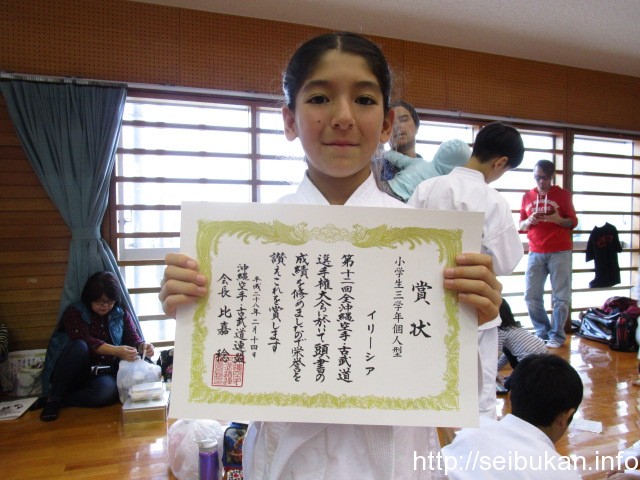 賞状
小学生三学年個人型
イリーシア
第十二回全沖縄空手・古武道
選手権大会に於いて頭書の
成績を修めましたので栄誉を
讃えこれを賞します
平成二十八年二月十四日
沖縄空手・古武道連盟
会長 比嘉 稔
http://seibukan.info